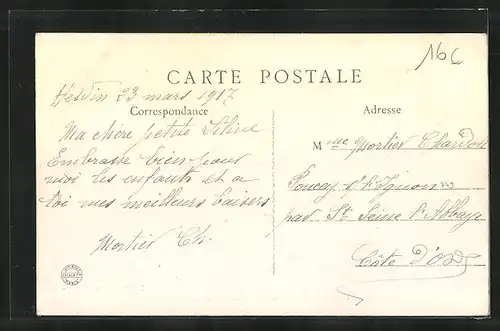 16c
CARTE POSTALE
Hesdin 23 mars 1917
Correspondance
Adresse
Ma chère petite
Embrasse bien pour
moi les enfants et a
toi mes meilleurs baisers
Mortier Ch.
Mme Mortier Chardon
Poncey s/ l'Ignon
par St Seine l'Abbaye
Côte D'Or